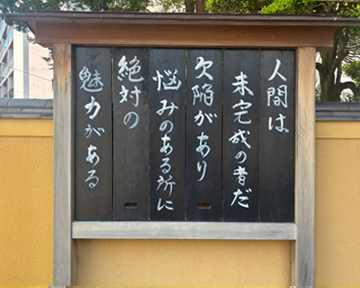 人間は
未完成の者だ
欠陥があり
悩みのある所に
絶対の
魅力がある